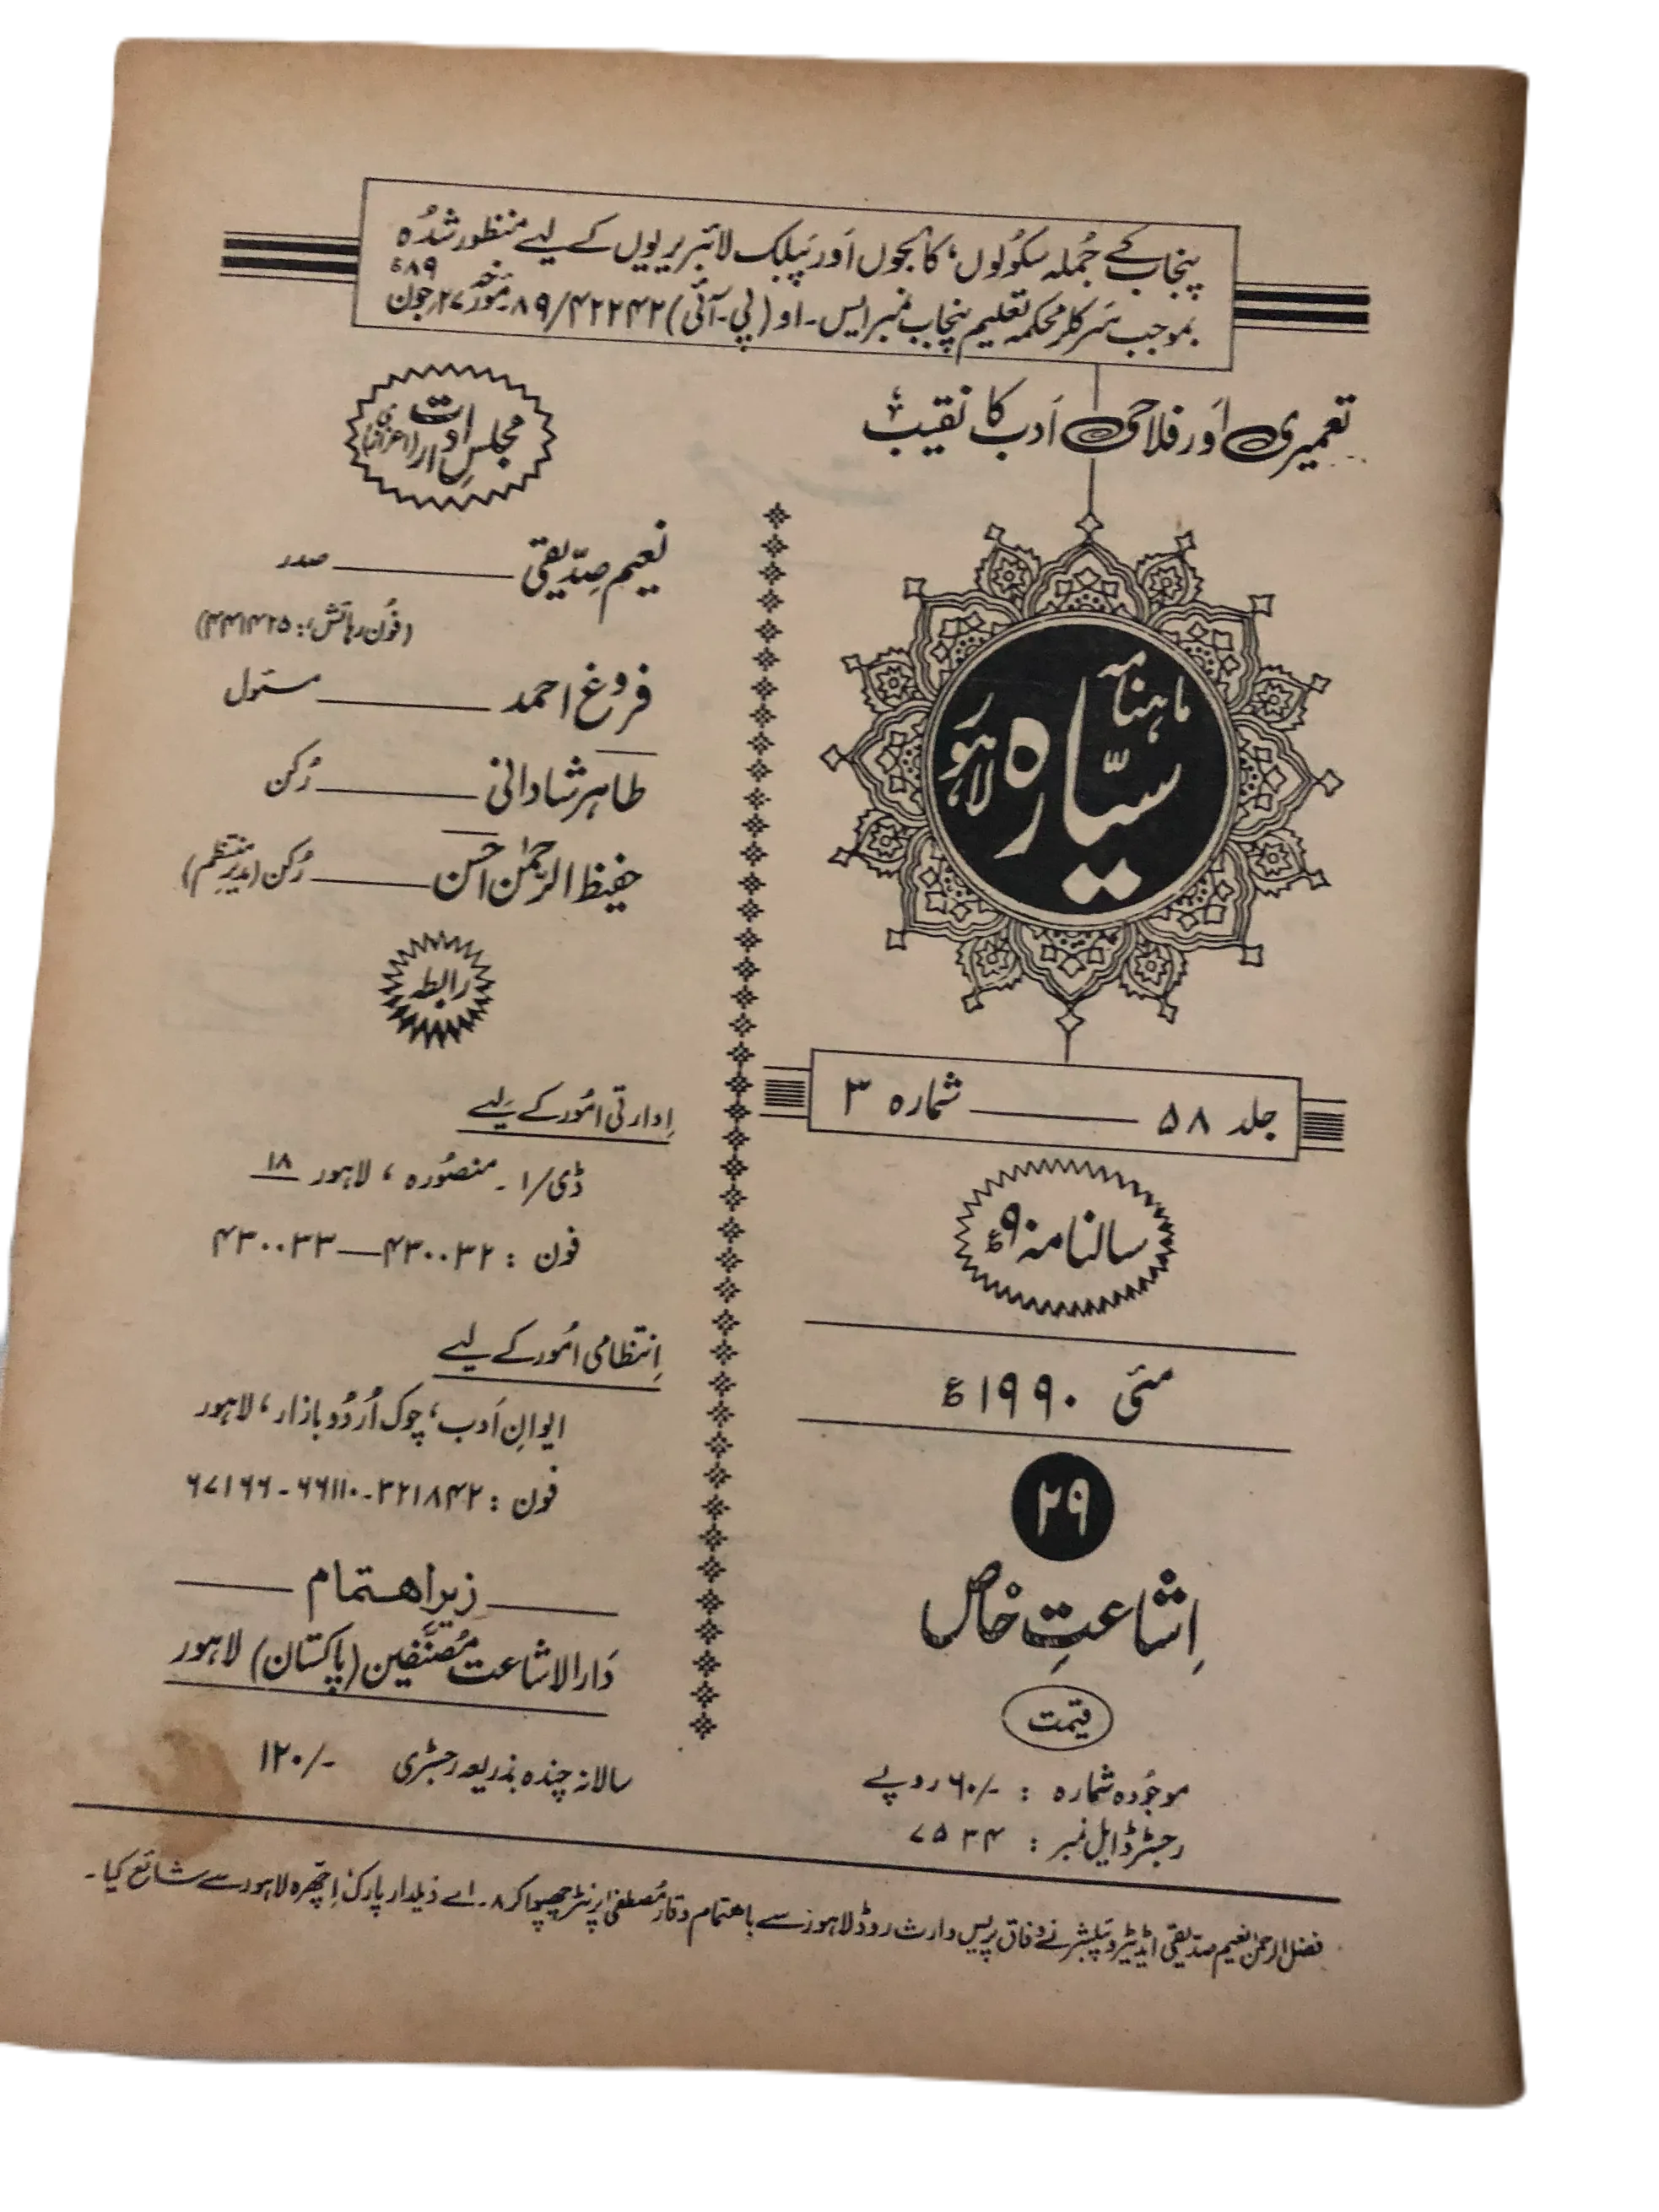 پنجاب کے جُملہ سکولوں، کالجوں اَور پبلک لائبریریوں کے لیے منظور شدُہ
بموجب سَرکلر محکمہ تعلیم پنجاب نمبر ایس۔او (پی۔آئی) ۸۹/۴۲۲۴۲ مورخہ ۲۷؍جون ۸۹ء
تعمیری اَور فلاحی اَدب کا نقیب
ماہنامہ
سیّارہ
لاہور
جلد ۵۸ ــــــ شمارہ ۳
سالنامہ ۹۰ء
مئی ۱۹۹۰ء
۲۹
اِشاعتِ خاص
قیمت
موجُودہ شمارہ : ۶۰/- روپے
رجسٹرڈ ایل نمبر : ۷۵۳۴
مجلسِ ادارت (اعزازی)
نعیم صِدّیقی ــــــ صدر
(فون رہائش: ۴۴۱۴۲۵)
فروغ احمد ــــــ مسئول
طاہر شادانی ــــــ رُکن
حفیظ الرحمٰن احسن ــــــ رُکن (مدیرِ منتظم)
رابطہ
اِدارتی امُور کے لیے
ڈی/۱۔ منصُورہ ، لاہور ۱۸
فون : ۴۳۰۰۳۲ــــ۴۳۰۰۳۳
اِنتظامی امُور کے لیے
ایوانِ اَدب، چوک اُردُو بازار، لاہور
فون : ۳۲۱۸۴۲-۶۶۱۱۰-۶۷۱۶۶
زیرِ اہتمام
دَارالاشاعت مُصنّفین (پاکستان) لاہور
سالانہ چندہ بذریعہ رجسٹری ۱۲۰/-
فضل الرحمٰن نعیم صدیقی ایڈیٹر و پبلشر نے وفاق پریس وارث روڈ لاہور سے باہتمام وقار مُصطفیٰ پرنٹر چھپوا کر ۸۔اے ذیلدار پارک اِچھرہ لاہور سے شائع کیا۔